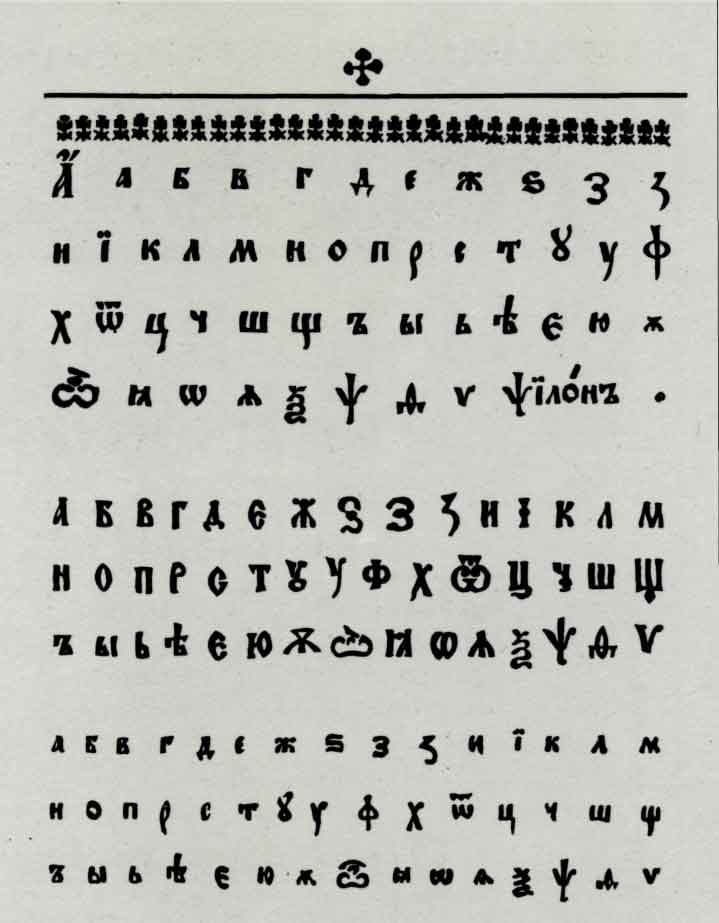 А҆́ а б в г д е ж ѕ з ʒ
и ї к л м н о п р с т ꙋ у ф
х ѿ ц ч ш щ ъ ы ь ѣ є ю ѫ
ѽ ꙗ ѡ ѧ ѯ ѱ ѳ ѵ ѱїло́нъ .
а б в г д є ж ѕ з ʒ и ї к л м
н о п р с т ꙋ у ф х ѿ ц ч ш щ
ъ ы ь ѣ є ю ѫ ѽ ꙗ ѡ ѧ ѯ ѱ ѳ ѵ
а б в г д е ж ѕ з ʒ и ї к л м
н о п р с т ꙋ у ф х ѿ ц ч ш щ
ъ ы ь ѣ є ю ѫ ѽ ꙗ ѡ ѧ ѯ ѱ ѳ ѵ